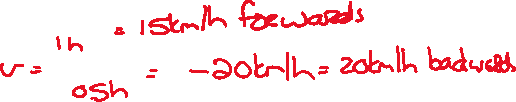 1h = 15km/h forwards
v = 05h = -20km/h = 20km/h backwards